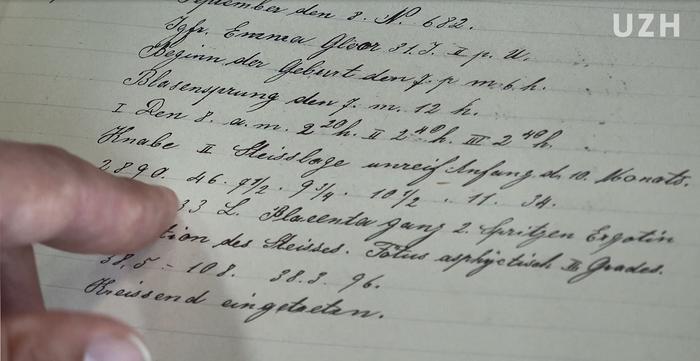 UZH
September den 8. N. 682.
Igfr. Emma Gloor 31. J. II p. U.
Beginn der Geburt den 7. p m 6 h.
Blasensprung den 7. m. 12 h.
I Den 8. a. m. 2 20 h. II 2 40 h. III 2 49 h.
Knabe II Steisslage unreif Anfang d. 10. Monats.
2890. 46. 9 1/2. 9 3/4. 10 1/2. 11. 34.
33 L. Placenta ganz 2. Spritzen Ergotin
tion des Steisses. Fötus asphyctisch II Grades.
38,5 - 108. 38.3. 96.
Kreissend eingetreten.